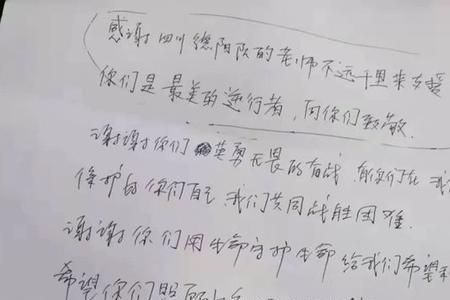 感谢四川德阳队的老师不远千里来支援
你们是最美的逆行者,向你们致敬.
谢谢你们英勇无畏的奋战 愿你们在
保护自你们自己,我们共同战胜困难.
谢谢你们用生命守护生命给我们希望和
希望你们照顾